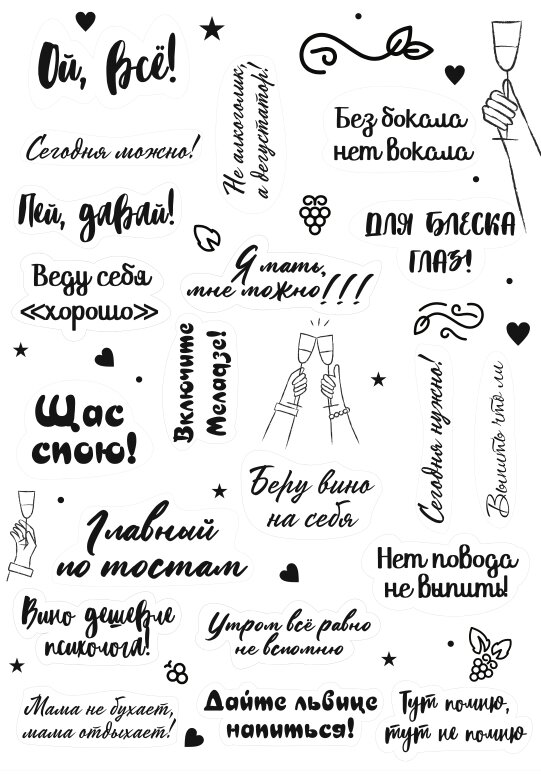 Ой, всё!
Не алкоголик,
а дегустатор!
Без бокала
нет вокала
Сегодня можно!
Пей, давай!
ДЛЯ БЛЕСКА
ГЛАЗ!
Я мать,
мне можно!!!
Веду себя
«хорошо»
Включите
Меладзе!
Щас
спою!
Сегодня нужно!
Выпить что ли
Беру вино
на себя
Главный
по тостам
Нет повода
не выпить!
Вино дешевле
психолога!
Утром всё равно
не вспомню
Мама не бухает,
мама отдыхает!
Дайте львице
напиться!
Тут помню,
тут не помню